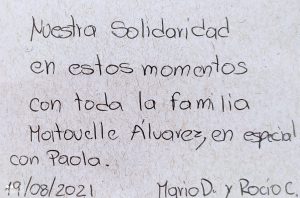 Nuestra Solidaridad
en estos momentos
con toda la familia
Moitouelle Álvarez, en especial
con Paola.
19/08/2021 Mario D. y Rocío C.